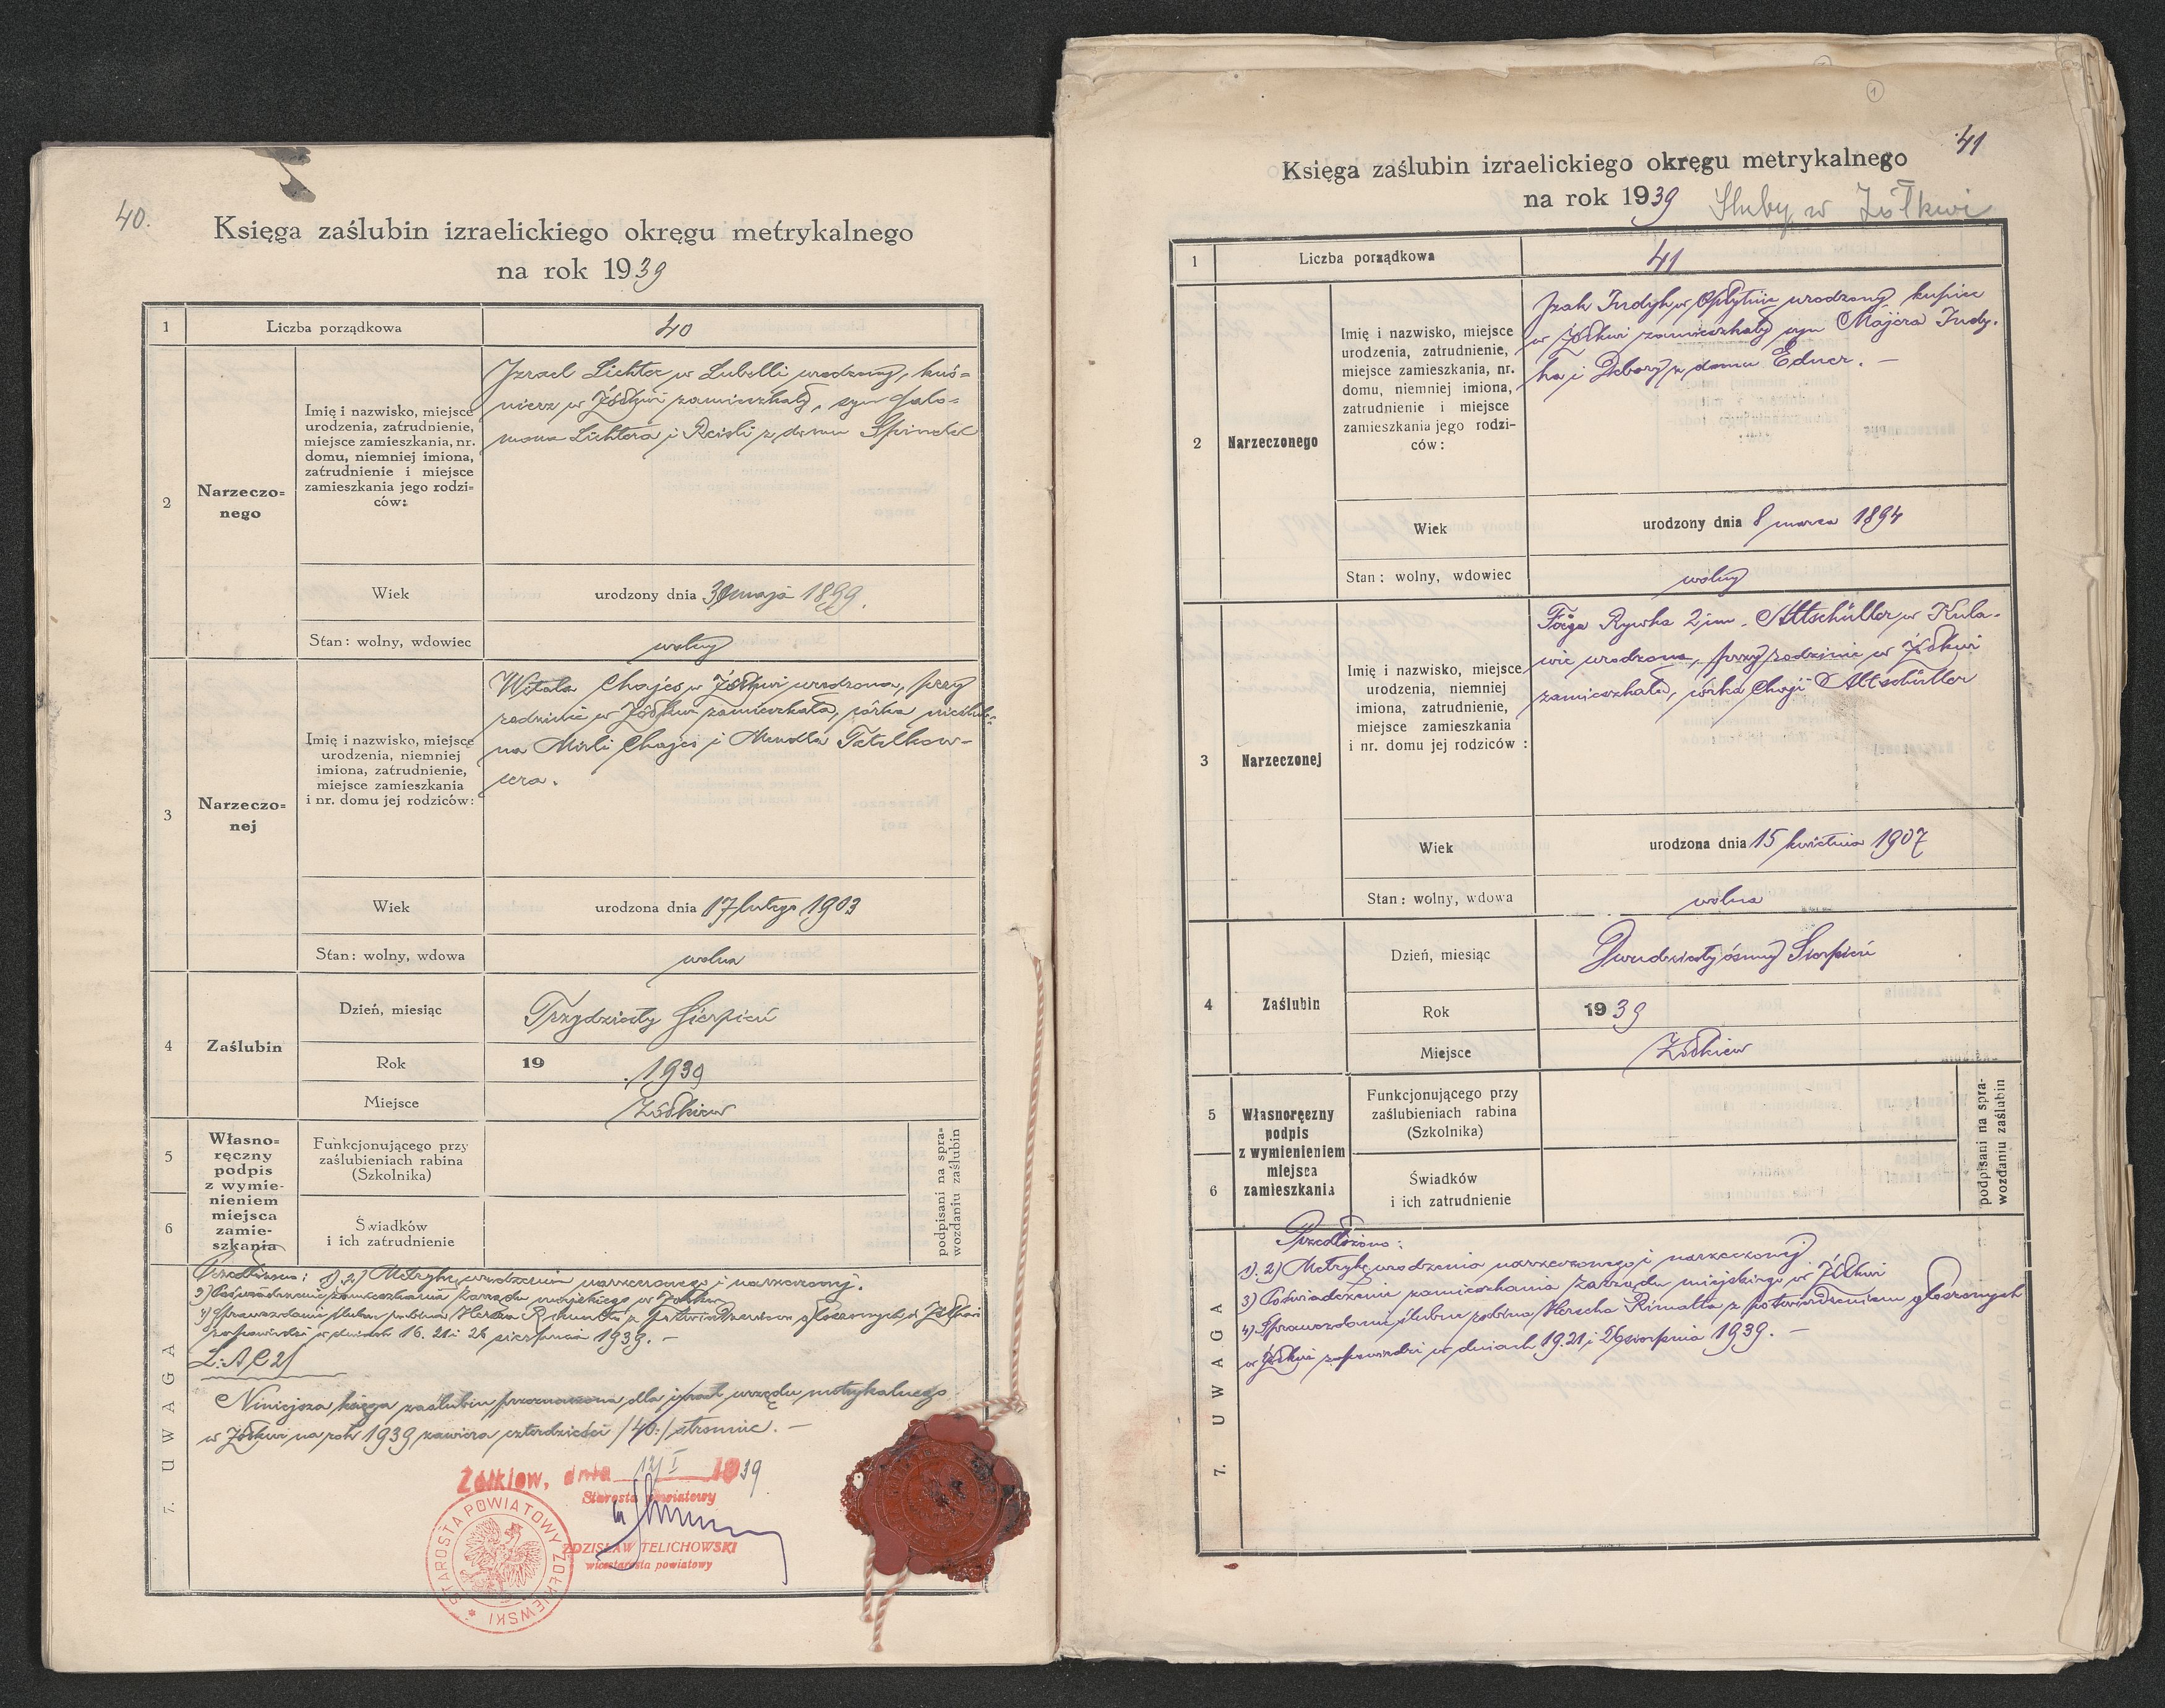 40.
Księga zaślubin izraelickiego okręgu metrykalnego
na rok 1939
1
Liczba porządkowa
40
2
Narzeczo=
nego
Imię i nazwisko, miejsce
urodzenia, zatrudnienie,
miejsce zamieszkania, nr.
domu, niemniej imiona,
zatrudnienie i miejsce
zamieszkania jego rodzi=
ców:
Izrael Lichter w Lubelli urodzony, kuś=
nierz w Żółkwi zamieszkały, syn Salo=
mona Lichtera i Reisli z domu Spindel
Wiek
urodzony dnia maja 1899.
Stan: wolny, wdowiec
wolny
3
Narzeczo=
nej
Imię i nazwisko, miejsce
urodzenia, niemniej
imiona, zatrudnienie,
miejsce zamieszkania
i nr. domu jej rodziców:
Witala Chajes w Żółkwi urodzona, przy
rodzinie w Żółkwi zamieszkała, córka
na Mirli Chajes i Mendla
Wiek
urodzona dnia 17 lutego 1903
Stan: wolny, wdowa
wolna
4
Zaślubin
Dzień, miesiąc
Trzydziesty Sierpień
Rok
19 1939
Miejsce
Żółkiew
5
6
Własno=
ręczny
podpis
z wymie-
nieniem
miejsca
zamie-
szkania
Funkcjonującego przy
zaślubieniach rabina
(Szkolnika)
Świadków
i ich zatrudnienie
podpisani na spra=
wozdaniu zaślubin
7. UWAGA
Przedłożono: 1). 2) Metrykę urodzenia narzeczonego i narzeczonej.
3) Poświadczenie zamieszkania Zarządu miejskiego w Żółkwi
4) Sprawozdanie ślubu rabina Hersza Rimalta z potwierdzeniem głoszonych w Żółkwi
zapowiedzi w dniach 16. 21 i 26 sierpnia 1939. –
Niniejsza księga zaślubin przeznaczona dla izrael. urzędu metrykalnego
w Żółkwi na rok 1939 zawiera czterdzieści /40:/ stronic. –
Żółkiew, dnia 12/I 1939
Starosta powiatowy
ZDZISŁAW TELICHOWSKI
wicestarosta powiatowy
STAROSTA POWIATOWY ŻÓŁKIEWSKI
1
41
Księga zaślubin izraelickiego okręgu metrykalnego
na rok 1939 Śluby w Żółkwi
1
Liczba porządkowa
41
2
Narzeczonego
Imię i nazwisko, miejsce
urodzenia, zatrudnienie,
miejsce zamieszkania, nr.
domu, niemniej imiona,
zatrudnienie i miejsce
zamieszkania jego rodzi-
ców:
Izak Indyk w urodzony kupiec
w Żółkwi zamieszkały syn Majera Indy-
ka i Debory z domu Edner. –
Wiek
urodzony dnia 8 marca 1894
Stan: wolny, wdowiec
wolny
3
Narzeczonej
Imię i nazwisko, miejsce
urodzenia, niemniej
imiona, zatrudnienie,
miejsce zamieszkania
i nr. domu jej rodziców:
Feiga Rywka 2 im. Altschüller w Kula-
wie urodzona, przy rodzinie w Żółkwi
zamieszkała, córka Chaji Altschüller
Wiek
urodzona dnia 15 kwietnia 1907
Stan: wolny, wdowa
wolna
4
Zaślubin
Dzień, miesiąc
Dwudziesty ósmy Sierpień
Rok
1939
Miejsce
Żółkiew
5
6
Własnoręczny
podpis
z wymienieniem
miejsca
zamieszkania
Funkcjonującego przy
zaślubieniach rabina
(Szkolnika)
Świadków
i ich zatrudnienie
podpisani na spra-
wozdaniu zaślubin
7. UWAGA
Przedłożono:
1). 2) Metrykę urodzenia narzeczonego i narzeczonej.
3) Poświadczenie zamieszkania Zarządu miejskiego w Żółkwi
4) Sprawozdanie ślubu rabina Herscha Rimalta z potwierdzeniem głoszonych
w Żółkwi zapowiedzi w dniach 19. 21 i 26 sierpnia 1939. –